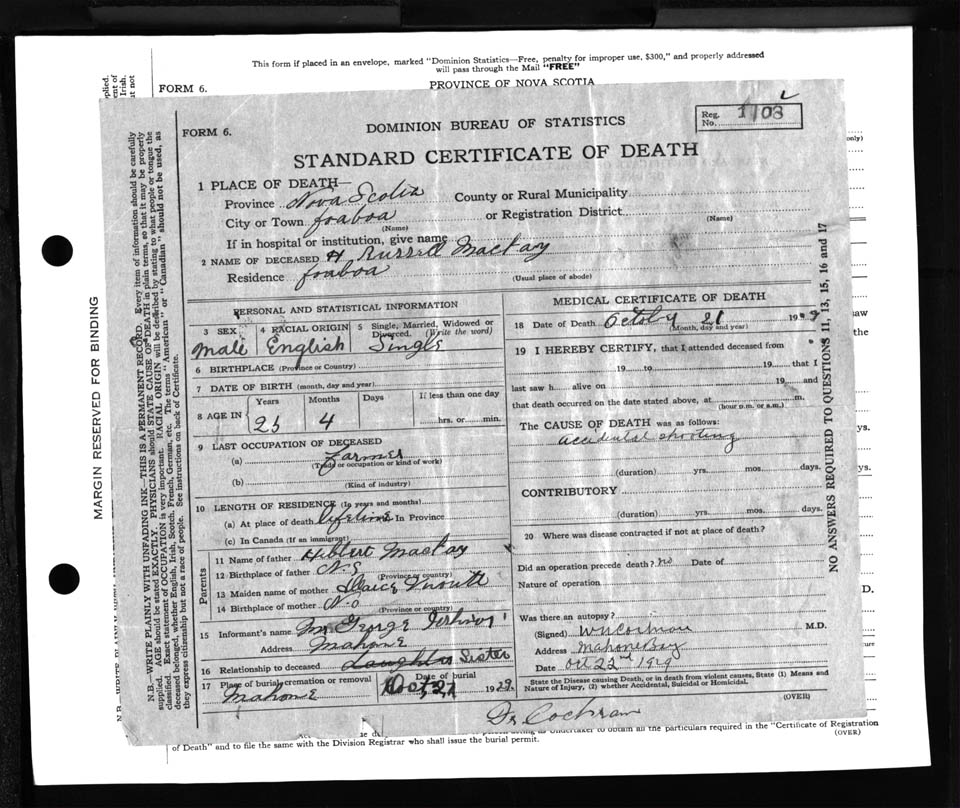 This form if placed in an envelope, marked "Dominion Statistics—Free, penalty for improper use, $300," and properly addressed
will pass through the Mail "FREE"
FORM 6.
PROVINCE OF NOVA SCOTIA
FORM 6.
DOMINION BUREAU OF STATISTICS
Reg. No. 1103
STANDARD CERTIFICATE OF DEATH
1 PLACE OF DEATH—
Province Nova Scotia County or Rural Municipality
City or Town or Registration District
(Name) (Name)
If in hospital or institution, give name
2 NAME OF DECEASED H Russell MacKay
Residence
(Usual place of abode)
PERSONAL AND STATISTICAL INFORMATION
3 SEX 4 RACIAL ORIGIN 5 Single, Married, Widowed or Divorced. (Write the word)
Male English Single
6 BIRTHPLACE (Province or Country)
7 DATE OF BIRTH (month, day and year)
8 AGE IN Years Months Days If less than one day
4 hrs. or min.
9 LAST OCCUPATION OF DECEASED
(a) Farmer
(Trade or occupation or kind of work)
(b)
(Kind of industry)
10 LENGTH OF RESIDENCE (In years and months)
(a) At place of death lifetime In Province
(c) In Canada (If an immigrant)
Parents
11 Name of father MacKay
12 Birthplace of father N.S
(Province or country)
13 Maiden name of mother
14 Birthplace of mother
(Province or country)
15 Informant's name George
Address Mahone
16 Relationship to deceased Sister
17 Place of burial, cremation or removal Date of burial
Mahone Oct 1929
MEDICAL CERTIFICATE OF DEATH
18 Date of Death 21 19
(Month, day and year)
19 I HEREBY CERTIFY, that I attended deceased from
19 to 19 that I
last saw h alive on 19 and
that death occurred on the date stated above, at m.
(hour p.m. or a.m.)
The CAUSE OF DEATH was as follows:
accidental shooting
(duration) yrs. mos. days.
CONTRIBUTORY
(duration) yrs. mos. days.
20 Where was disease contracted if not at place of death?
Did an operation precede death? no Date of
Nature of operation
Was there an autopsy?
(Signed) M.D.
Address Mahone Bay
Date Oct 22nd 1929
State the Disease causing Death, or in death from violent causes, State (1) Means and
Nature of Injury, (2) whether Accidental, Suicidal or Homicidal.
(OVER)
Dr Cochran
MARGIN RESERVED FOR BINDING
N.B.—WRITE PLAINLY WITH UNFADING INK—THIS IS A PERMANENT RECORD. Every item of information should be carefully
supplied. AGE should be stated EXACTLY. PHYSICIANS should STATE CAUSE OF DEATH in plain terms, so that it may be properly
classified. Exact statement of OCCUPATION is very important. RACIAL ORIGIN will be described by stating to what people or tongue the
deceased belonged, whether English, Irish, Scotch, French, German, etc. The terms "American" or "Canadian" should not be used, as
they express citizenship but not a race of people. See instructions on back of Certificate.
NO ANSWERS REQUIRED TO QUESTIONS 11, 13, 15, 16 and 17
acting as Undertaker to obtain all the particulars required in the "Certificate of Registration
of Death" and to file the same with the Division Registrar who shall issue the burial permit.
(OVER)